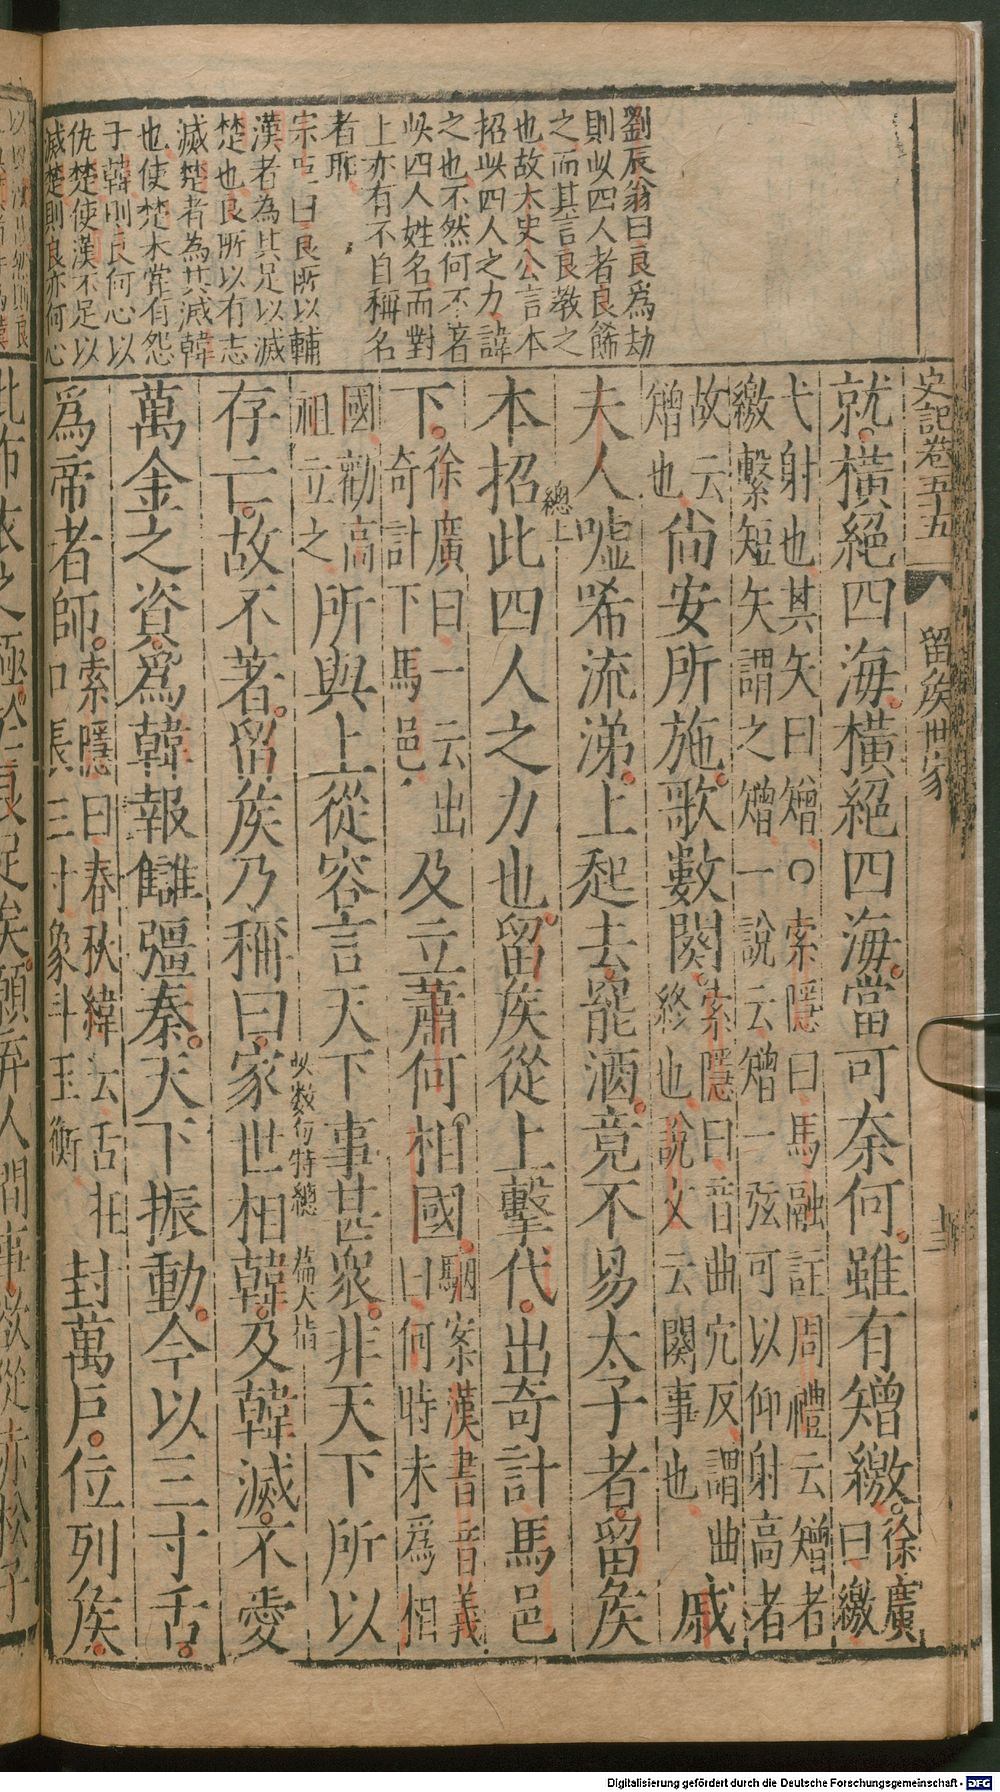 史記卷五十五
留矦世家
十三
劉辰翁曰良爲劫
則此四人者良餙
之而其言良教之
也故太史公言本
招此四人之力諱
之也不然何不著
此四人姓名而對
上亦有不自稱名
者耶
曰良所以輔
漢者為其足以滅
楚也良所以有志
滅楚者為其滅韓
也使楚未甞有怨
于韓則良何心以
仇楚使漢不足以
滅楚則良亦何心
就橫絕四海橫絕四海當可柰何雖有矰繳徐廣曰繳
弋射也其矢曰矰○索隱曰馬融註周禮云矰者
繳繫短矢謂之矰一說云矰一弦可以仰射高者
故云矰也尙安所施歌數闋索隱曰音曲穴反謂曲終也說文云闋事也戚
夫人嘘唏流涕上起去罷酒竟不易太子者留矦
總上
本招此四人之力也留矦從上擊代出奇計馬邑
下徐廣曰一云出奇計下馬邑及立蕭何相國駰案漢書音義曰何時未爲相
國勸高祖立之所與上從容言天下事甚衆非天下所以
存亡故不著留矦乃稱曰家世相韓及韓滅不愛
此數句特總
萹大指
萬金之資爲韓報讎彊秦天下振動今以三寸舌
爲帝者師索隱曰春秋緯云舌在口長三寸象斗玉衡封萬戶位列矦
此布衣之極於良足矣願弃人間事欲從赤松子
Digitalisierung gefördert durch die Deutsche Forschungsgemeinschaft - DFG